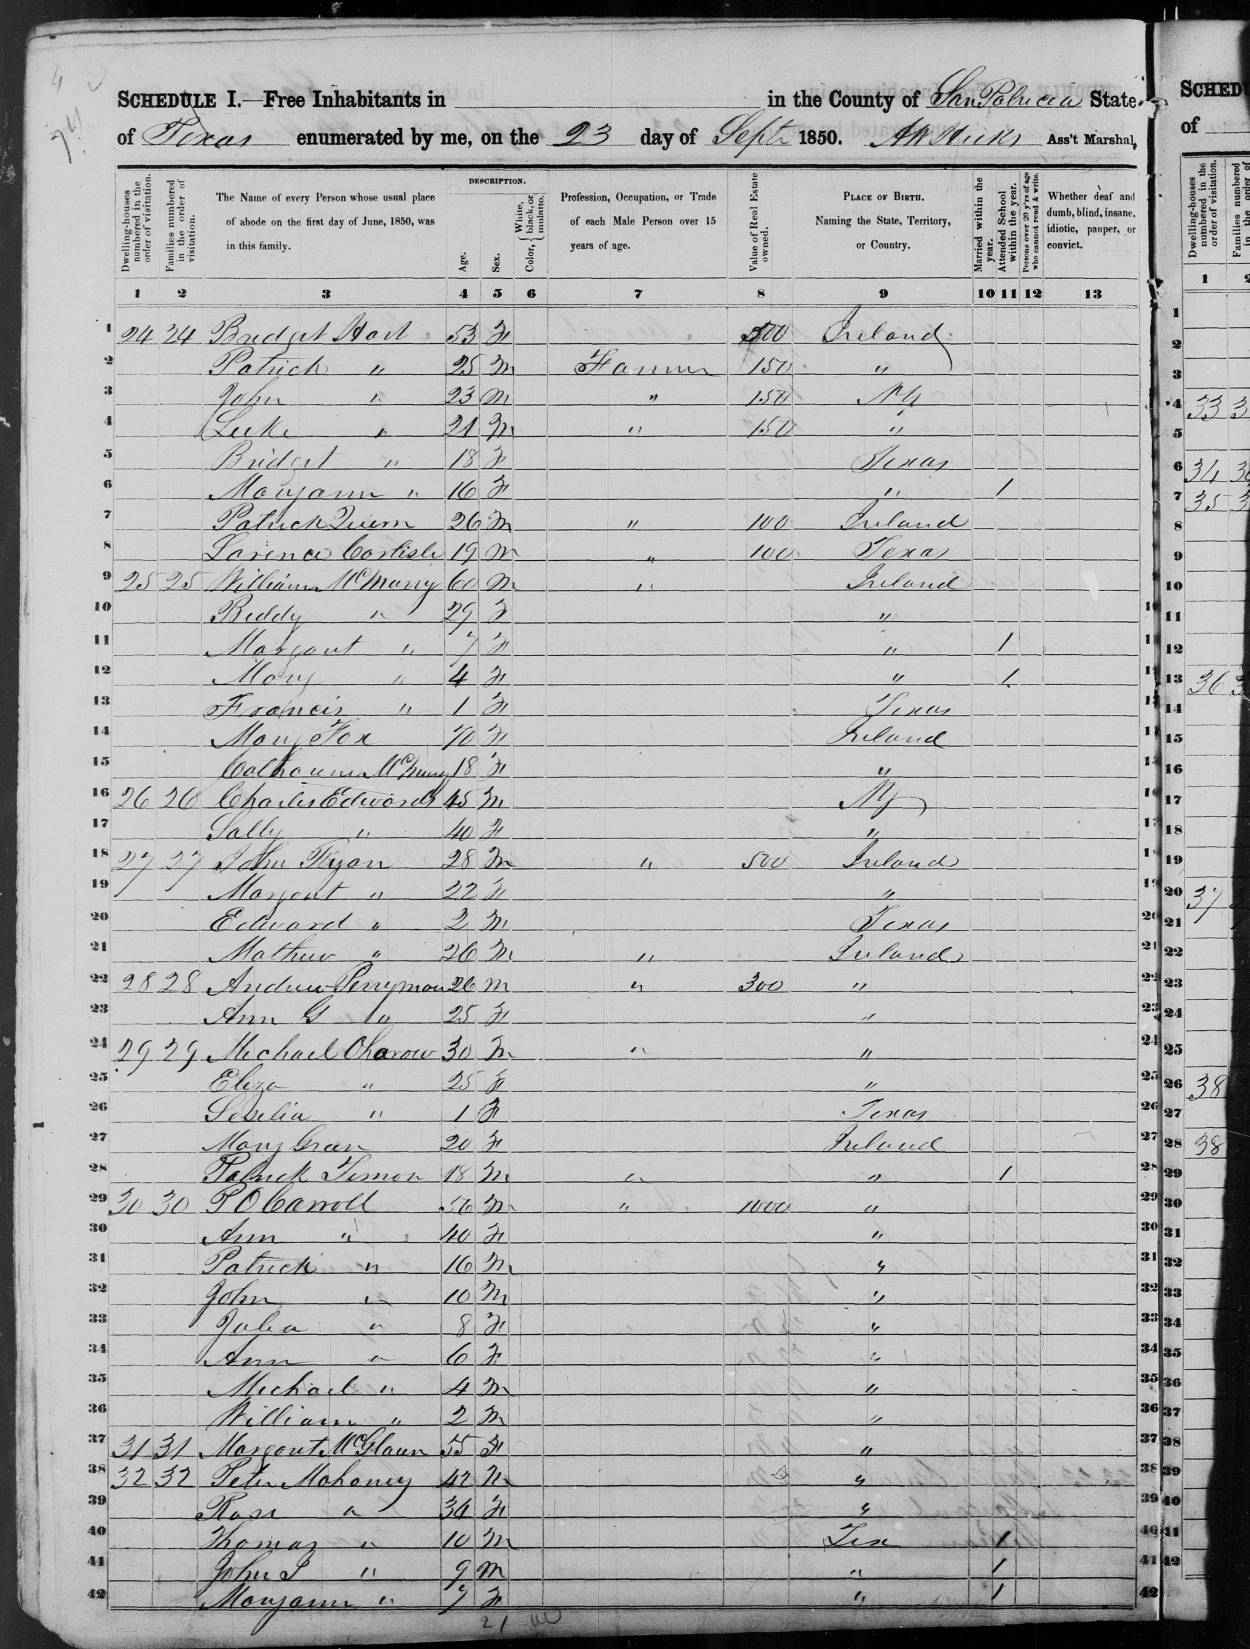 4
SCHEDULE I.—Free Inhabitants in in the County of San Patricia State
of Texas enumerated by me, on the 23 day of Sept 1850. Ass't Marshal,
Dwelling-houses numbered in the order of visitation.
Families numbered in the order of visitation.
The Name of every Person whose usual place of abode on the first day of June, 1850, was in this family.
DESCRIPTION.
Age.
Sex.
Color, White, black, or mulatto.
Profession, Occupation, or Trade of each Male Person over 15 years of age.
Value of Real Estate owned.
PLACE OF BIRTH. Naming the State, Territory, or Country.
Married within the year.
Attended School within the year.
Persons over 20 y'rs of age who cannot read & write.
Whether deaf and dumb, blind, insane, idiotic, pauper, or convict.
1 2 3 4 5 6 7 8 9 10 11 12 13
1 24 24 Bridget Hart 53 F 500 Ireland
2 Patrick " 25 M Farmer 150 "
3 John " 23 M " 150 NY
4 Luke " 21 M " 150 "
5 Bridget " 18 F Texas
6 Maryann " 16 F " 1
7 Patrick Quern 26 M " 100 Ireland
8 Larence Carlisle 19 M " 100 Texas
9 25 25 William McMarry 60 M " Ireland
10 Biddy " 29 F "
11 Margaret " 7 F " 1
12 Mary " 4 F " 1
13 Francis " 1 F Texas
14 Mary Fox 70 F Ireland
15 18 F "
16 26 26 Charles Edwards 45 M NY
17 Sally " 40 F "
18 27 27 John Ryan 28 M " 500 Ireland
19 Margaret " 22 F "
20 Edward " 2 M Texas
21 Mathew " 26 M " Ireland
22 28 28 Andrew Perryman 26 M " 300 "
23 Ann G " 25 F "
24 29 29 Michael Oharow 30 M " "
25 Eliza " 25 F "
26 Sesilia " 1 F Texas
27 Mary Gran 20 F Ireland
28 Patrick Timon 18 M " " 1
29 30 30 P O Carroll 56 M " 1000 "
30 Ann " 40 F "
31 Patrick " 16 M "
32 John " 10 M "
33 Julia " 8 F "
34 Ann " 6 F "
35 Michael " 4 M "
36 William " 2 M "
37 31 31 Margaret McGlaun 55 F "
38 32 32 Peter Mahoney 42 M "
39 Rose " 34 F "
40 Thomas " 10 M Tex 1
41 John P " 9 M " 1
42 Maryann " 7 F " 1
21
SCHED
of
Dwelling-houses numbered in the order of visitation.
Families numbered
1
1
2
3
4 33
5
6 34
7 35
8
9
10
11
12
13 36
14
15
16
17
18
19
20 37
21
22
23
24
25
26 38
27
28 38
29
30
31
32
33
34
35
36
37
38
39
40
41
42